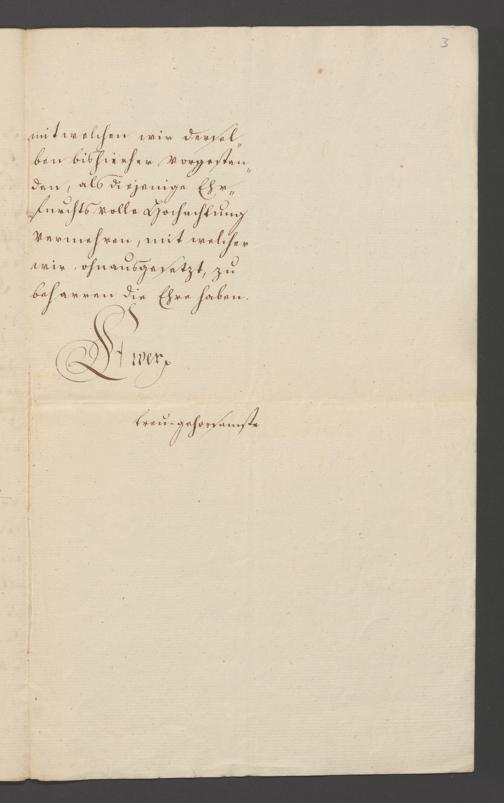 3
mit welchen wir dersel„
ben bishierher vorgestan„
den, als diejenige Ehr„
furchtsvolle Hochachtung
vermehren, mit welcher
wir, ohnausgesetzt, zu
beharren die Ehre haben.
Ewer
treu-gehorsamste